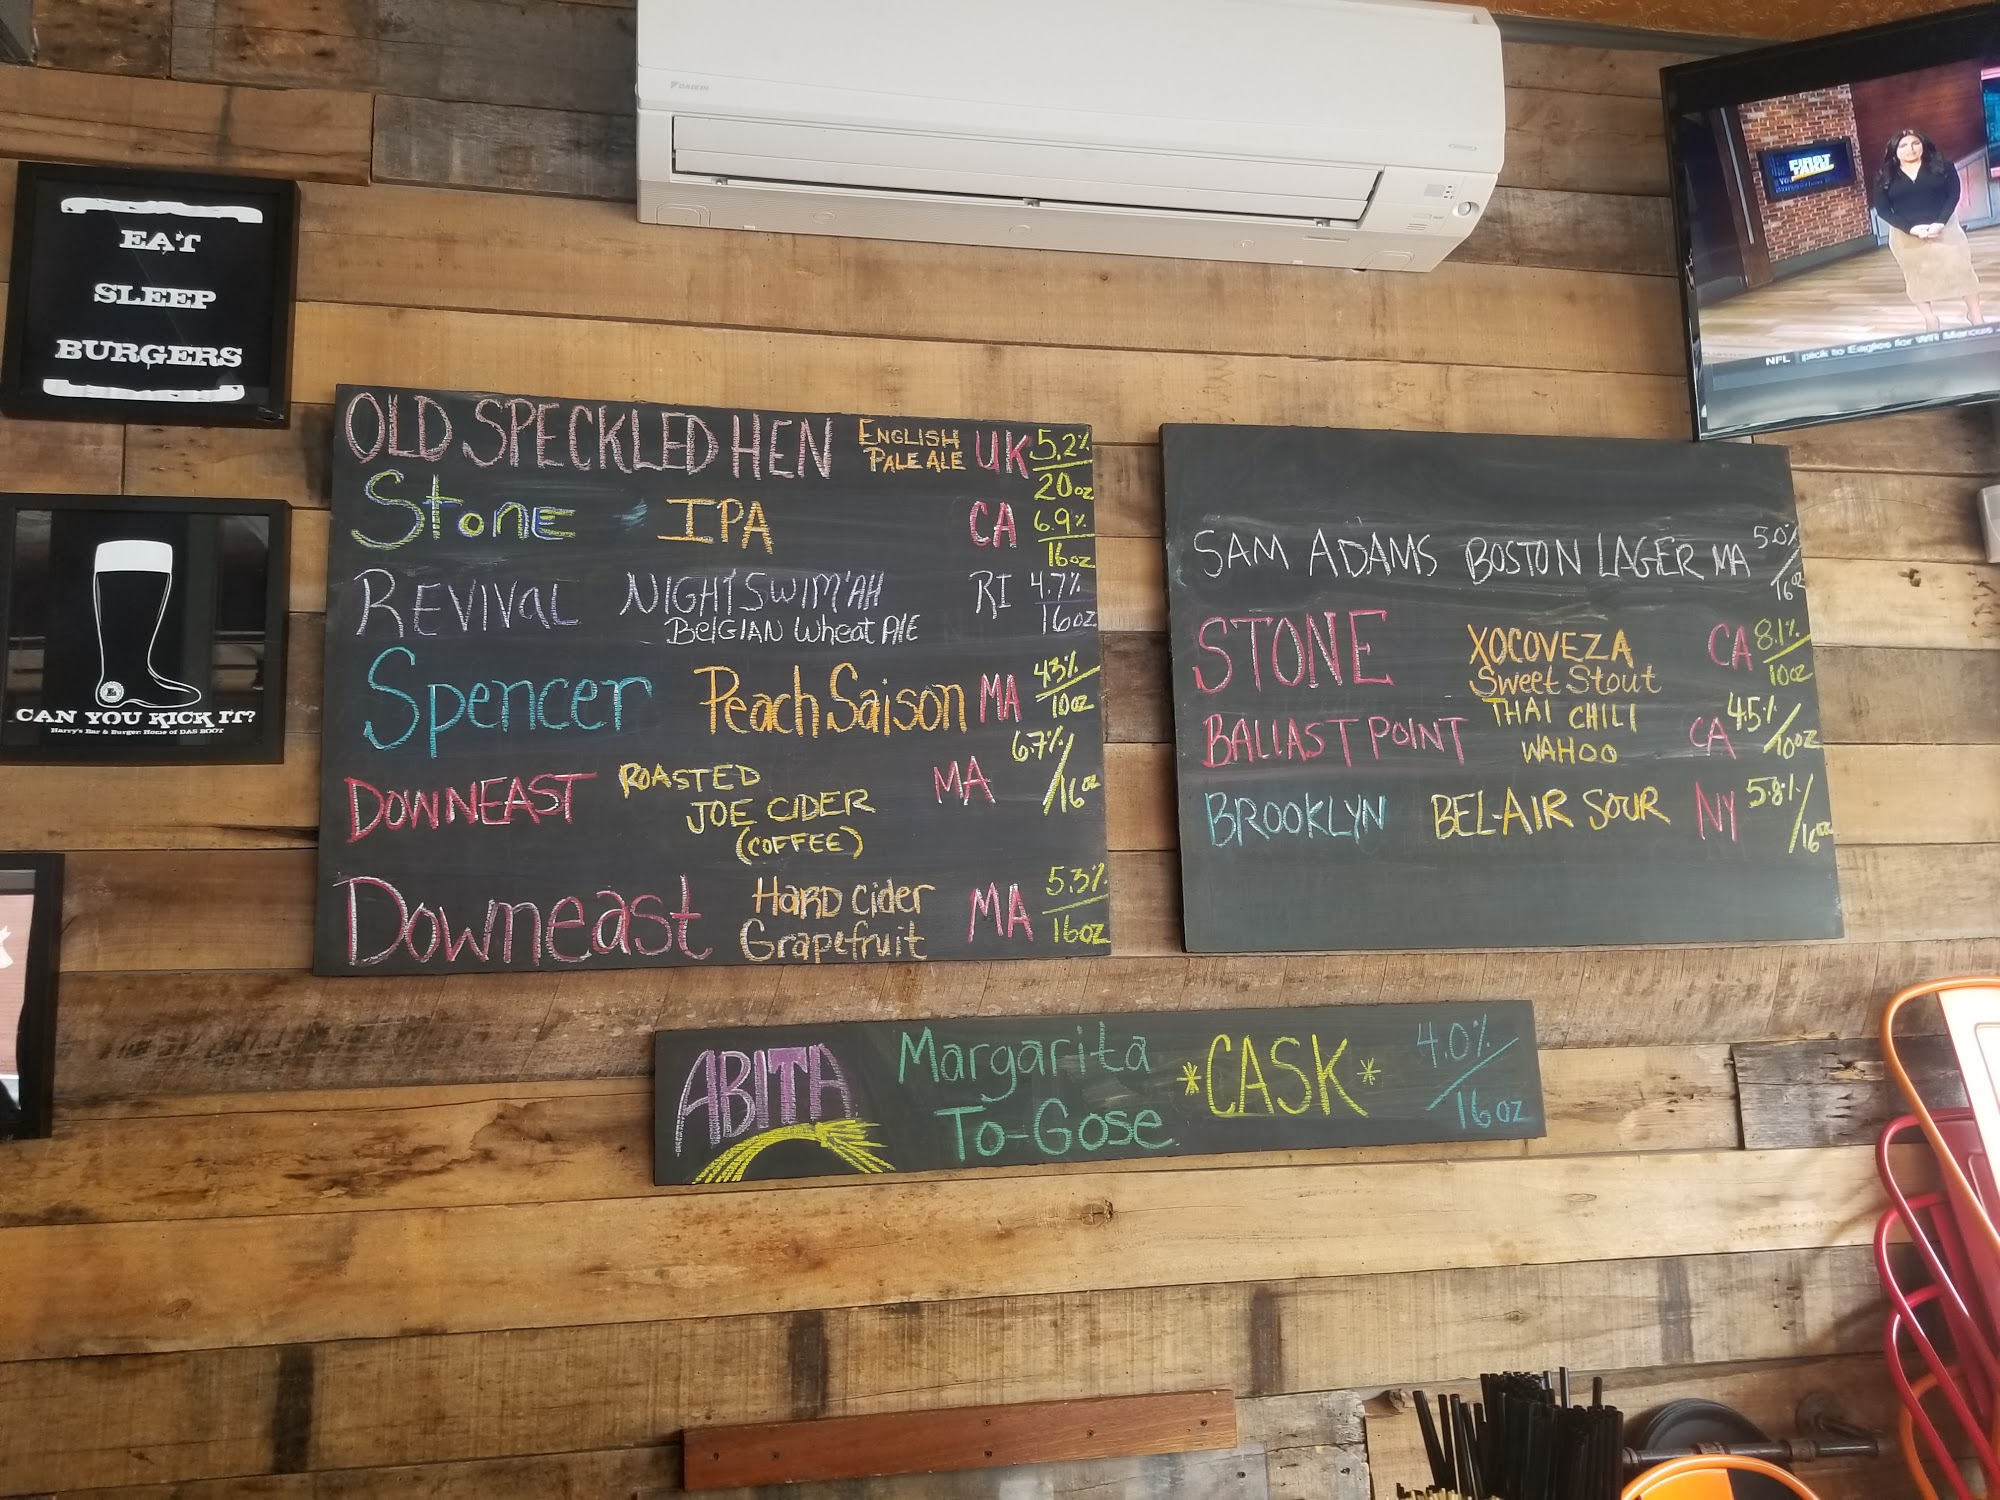 DAIKIN
FIRST
TAKE
NFL pick to Eagles for WR Marcus
EAT
SLEEP
BURGERS
CAN YOU KICK IT?
Harry's Bar & Burger: Home of DAS BOOT
OLD SPECKLED HEN ENGLISH PALE ALE UK 5.2% 20oz
Stone IPA CA 6.9% 16oz
REVIVAL NIGHT SWIM'AH RI 4.7%
BELGIAN WHEAT ALE 16oz
Spencer Peach Saison MA 4.3% 10oz
DOWNEAST ROASTED MA 6.7%/16oz
JOE CIDER
(COFFEE)
Downeast HARD Cider MA 5.3%
Grapefruit 16oz
SAM ADAMS BOSTON LAGER MA 5.0%/16oz
STONE XOCOVEZA CA 8.1%
Sweet Stout 10oz
BALLAST POINT THAI CHILI CA 4.5%/10oz
WAHOO
BROOKLYN BEL-AIR SOUR NY 5.8%/16oz
ABITA Margarita *CASK* 4.0%
To-Gose 16oz